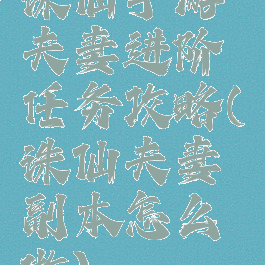 诛仙手游
夫妻进阶
任务攻略(
诛仙夫妻
副本怎么